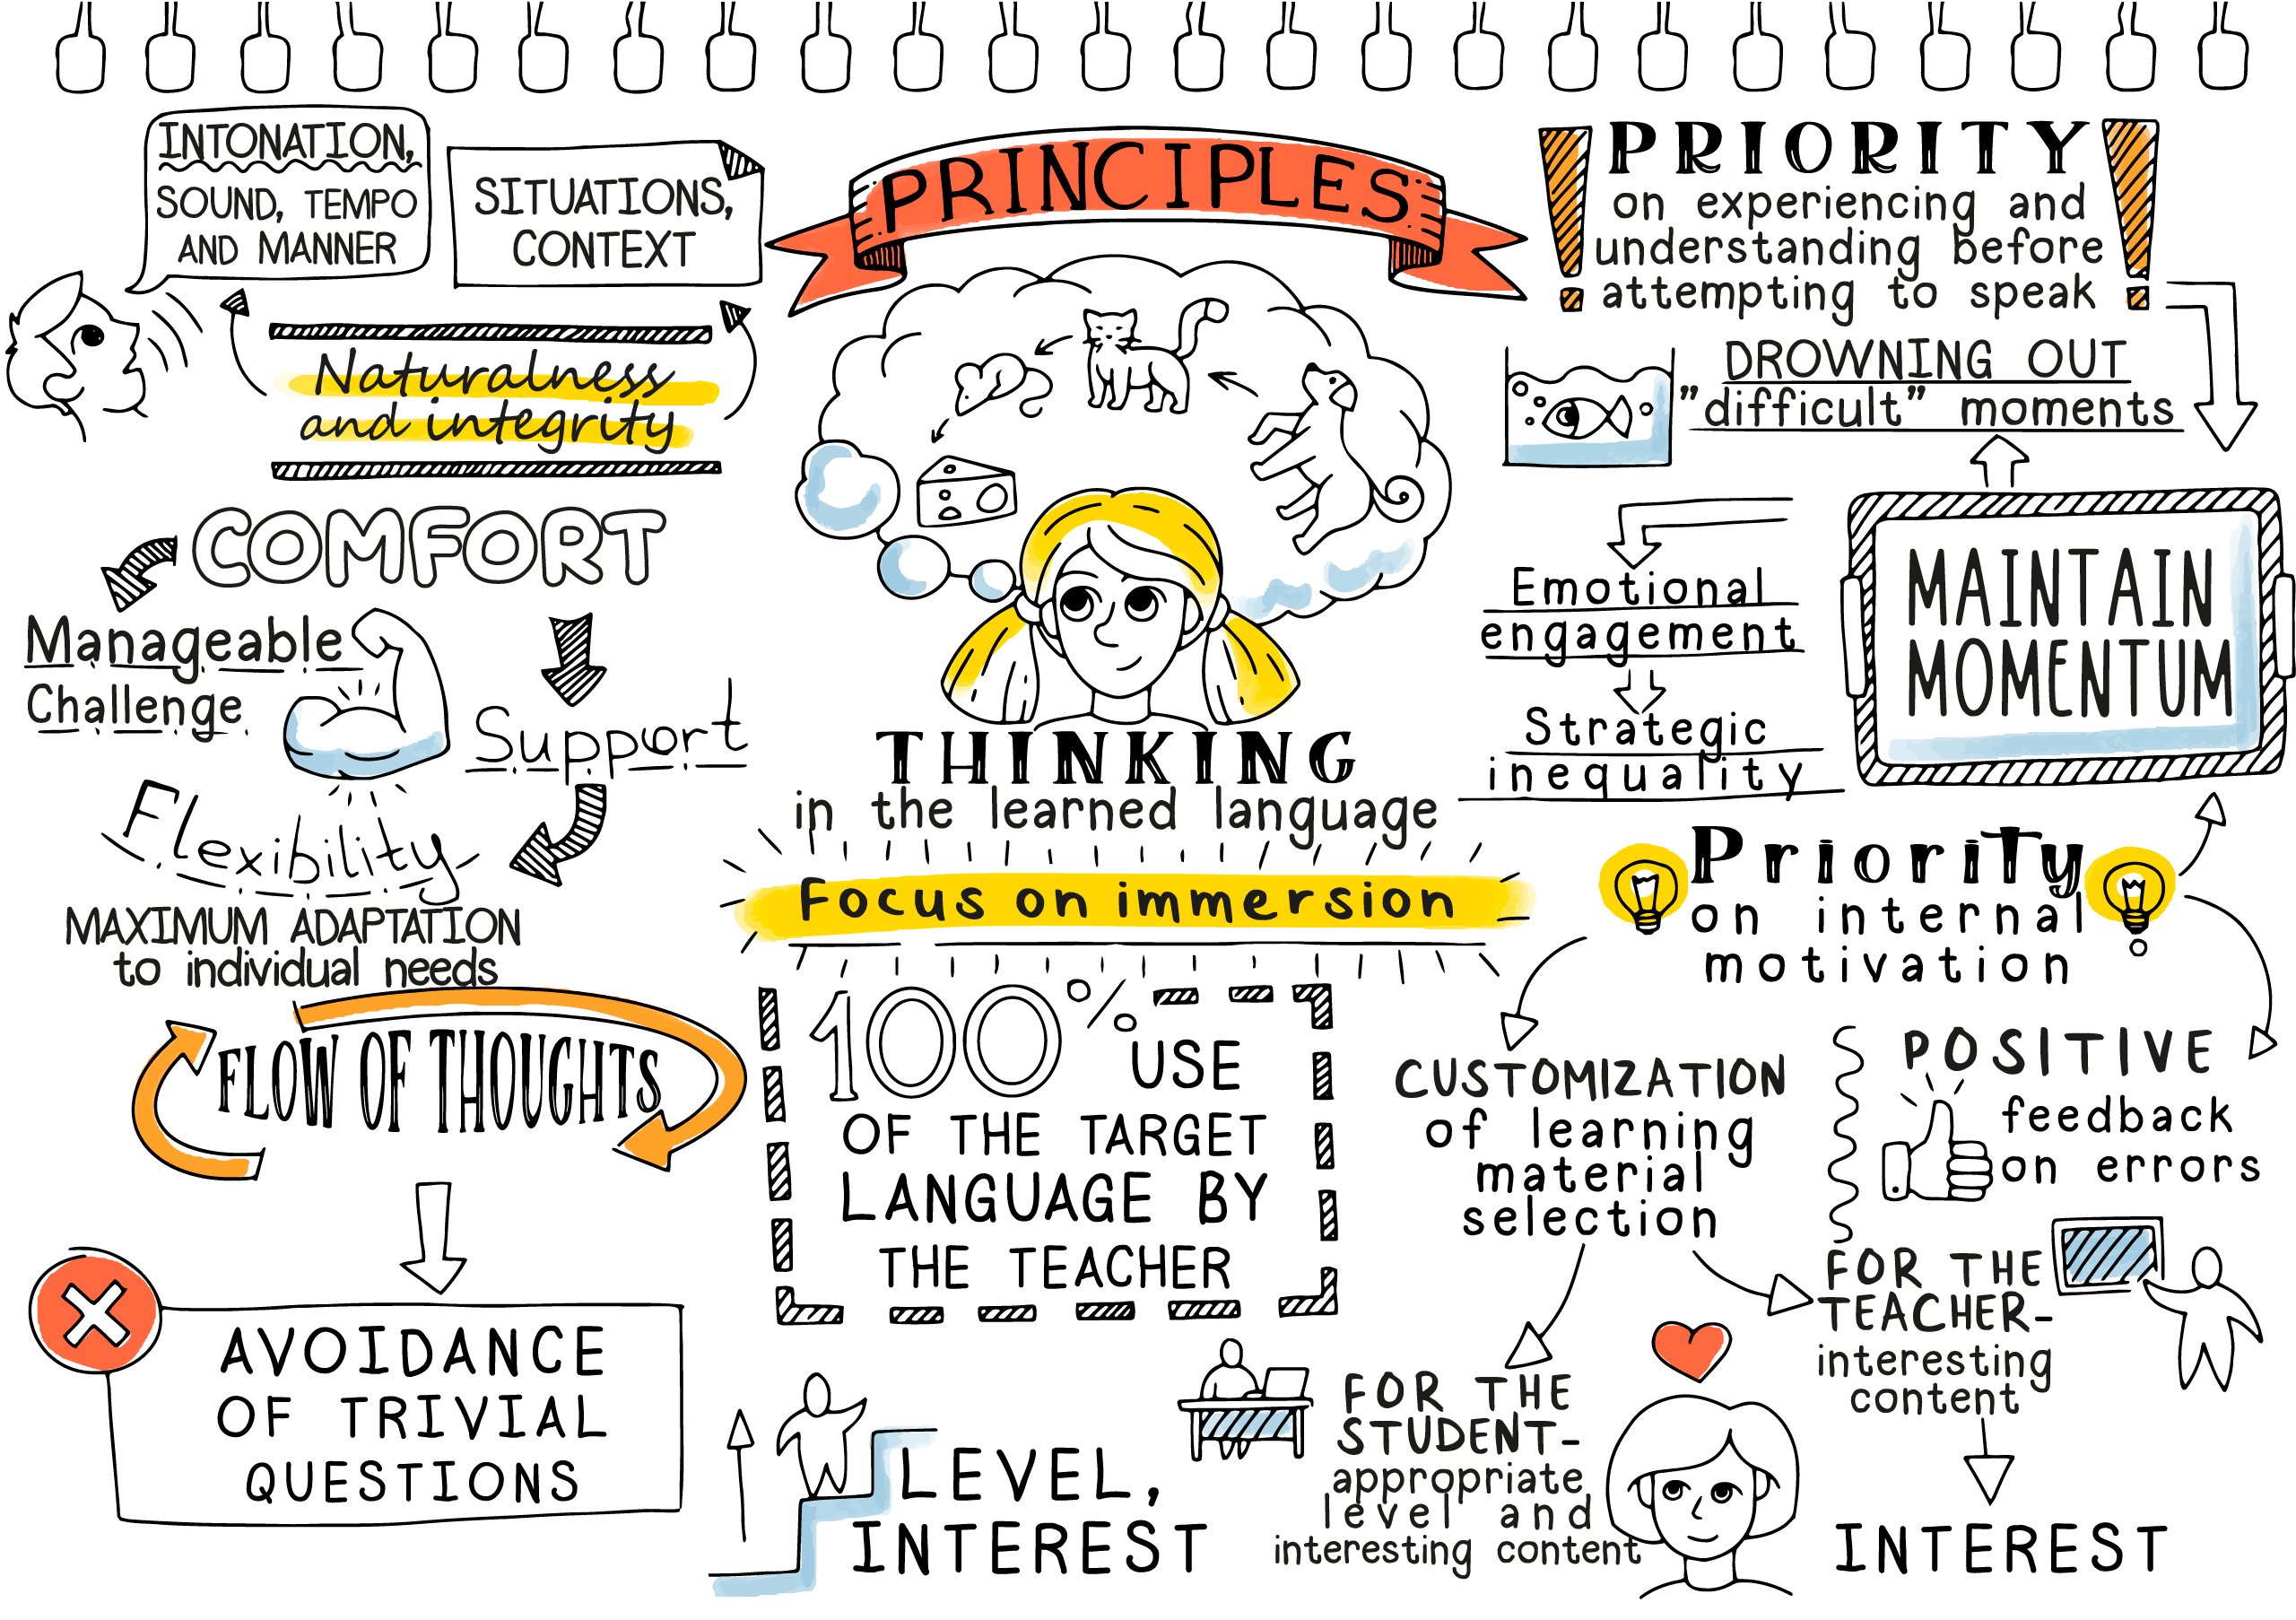 INTONATION,
SOUND, TEMPO
AND MANNER
SITUATIONS,
CONTEXT
Naturalness
and integrity
COMFORT
Manageable
Challenge
Support
Flexibility
MAXIMUM ADAPTATION
to individual needs
FLOW OF THOUGHTS
AVOIDANCE
OF TRIVIAL
QUESTIONS
PRINCIPLES
THINKING
in the learned language
Focus on immersion
100% USE
OF THE TARGET
LANGUAGE BY
THE TEACHER
LEVEL,
INTEREST
PRIORITY
on experiencing and
understanding before
attempting to speak
DROWNING OUT
"difficult" moments
Emotional
engagement
Strategic
inequality
MAINTAIN
MOMENTUM
Priority
on internal
motivation
CUSTOMIZATION
of learning
material
selection
POSITIVE
feedback
on errors
FOR THE
TEACHER-
interesting
content
FOR THE
STUDENT-
appropriate
level and
interesting content
INTEREST